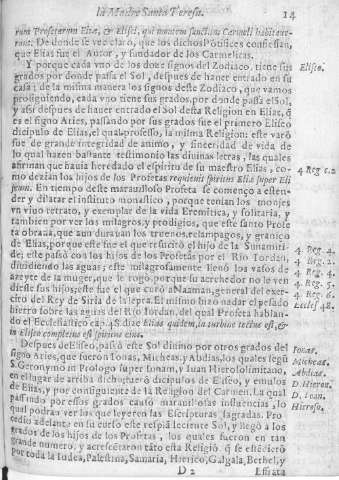 la Madre Santa Teresa. 14
runt Prophetarum Eliæ, & Elisei, qui montem sanctum Carmeli habitaue-
runt. De donde se vee claro, que los dichos Põtifices confiessan,
que Elias fue el Autor, y fundador de los Carmelitas.
Y porque cada vno de los doze signos del Zodiaco, tiene sus
Eliseo.
grados por donde passa el Sol, despues de hauer entrado en su
casa; de la misma manera los signos deste Zodiaco, que vamos
prosiguiendo, cada vno tiene sus grados, por donde passa el Sol,
y assi despues de hauer entrado el Sol desta Religion en Elias, q̃
es el signo Aries, passando por sus grados fue el primero Eliseo
dicipulo de Elias, el qual professo, la misma Religion: este varõ
fue de grande integridad de animo, y sinceridad de vida de
lo qual hazen bastante testimonio las diuinas letras, las quales
afirman que hauia heredado el espiritu de su maestro Elias, co-
mo dezian los hijos de los Profetas requieuit spiritus Eliæ super Eli
4 Reg. 1.2
seum. En tiempo deste marauilloso Profeta se començo a esten-
der y dilatar el instituto monastico, porque tenian los monjes
vn viuo retrato, y exemplar de la vida Eremitica, y solitaria, y
tambien por ver los milagros, y prodigios, que este santo Profe
ta obraua, que aun durauan los truenos, relampagos, y granico
de Elias, porque este fue el que resucitò el hijo de la Sunamiti-
4. Reg. 4.
de; este passò con los hijos de los Profetas por el Rio Iordan,
4. Reg. 2.
diuidiendo las aguas; este milagrosamente llenò los vasos de
4. Reg. 4.
azeyte de la muger, que le rogò, porque su acrehedor no le ven
4. Reg. 5.
diesse sus hijos; este fue el que curò a Naaman, general del exer-
4. Reg. 6.
cito del Rey de Siria de la lepra. El mismo hizo nadar el pesado
Eccles. 48.
hierro sobre las aguas del Rio Iordan, del qual Profeta hablan-
do el Ecclesiastico cap. 48. dize Elias quidem, in turbine tectus est, &
in Eliseo completus est spiritus eius.
Despues de Eliseo, passò este Sol diuino por otros grados del
Ionas,
signo Aries, que fueron Ionas, Micheas, y Abdias, los quales segũ
Micheas,
S. Geronymo in Prologo super Ionam, y Iuan Hierosolimitano,
Abdias.
en el lugar de arriba dicho, fuerõ dicipulos de Eliseo, y emulos
D. Hieron.
de Elias, y por consiguiente de la Religion del Carmen. La qual
D. Ioan.
passando por essos grados causò marauillosas influencias, lo
Hieroso.
qual podran ver los que leyeren las Escripturas sagradas. Pro
cedio adelante en su curso este resplãdeciente Sol, y llegò a los
grados de los hijos de los Profetas, los quales fueron en tan
grande numero, y acrescetaron tãto esta Religiõ, q̃ se estẽdierõ
por toda la Iudea, Palestina, Samaria, Hierico, Galgala, Bethel, y
D 2 Efrata